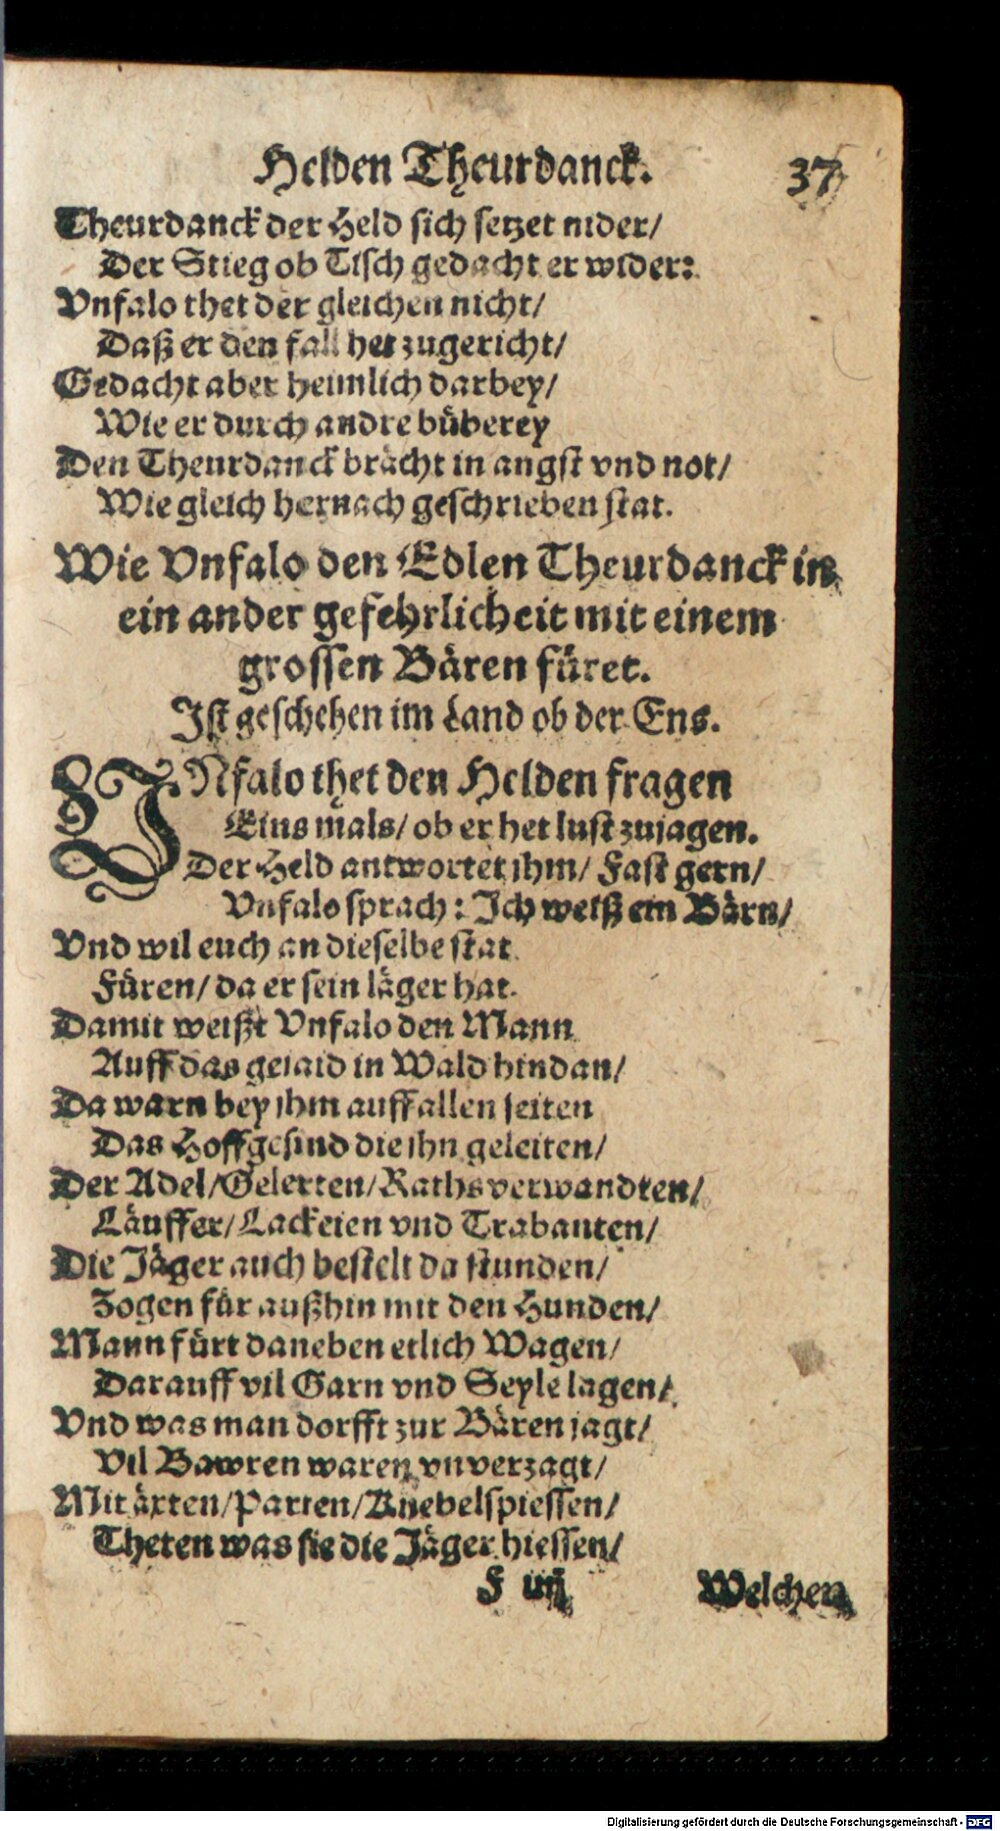 Helden Theurdanck. 37
Theurdanck der Held sich setzet nider/
Der Stieg ob Tisch gedacht er wider:
Vnfalo thet der gleichen nicht/
Daß er den fall het zugericht/
Gedacht aber heimlich darbey/
Wie er durch andre büberey
Den Theurdanck brächt in angst vnd not/
Wie gleich hernach geschrieben stat.
Wie Vnfalo den Edlen Theurdanck in
ein ander gefehrlicheit mit einem
grossen Bären füret.
Ist geschehen im Land ob der Ens.
VNfalo thet den Helden fragen
Eins mals/ ob er het lust zujagen.
Der Held antwortet ihm/ Fast gern/
Vnfalo sprach: Ich weiß ein Bärn/
Vnd wil euch an dieselbe stat
Füren/ da er sein läger hat.
Damit weißt Vnfalo den Mann
Auff das geiaid in Wald hindan/
Da warn bey ihm auff allen seiten
Das Hoffgesind die ihn geleiten/
Der Adel/Gelerten/Rathsverwandten/
Läuffer/Lackeien vnd Trabanten/
Die Jäger auch bestelt da stunden/
Zogen für außhin mit den Hunden/
Mann fürt daneben etlich Wagen/
Darauff vil Garn vnd Seyle lagen/
Vnd was man dorfft zur Bären jagt/
Vil Bawren waren vnverzagt/
Mit äxten/Parten/Knebelspiessen/
Theten was sie die Jäger hiessen/
F iij Welchen
Digitalisierung gefördert durch die Deutsche Forschungsgemeinschaft - DFG